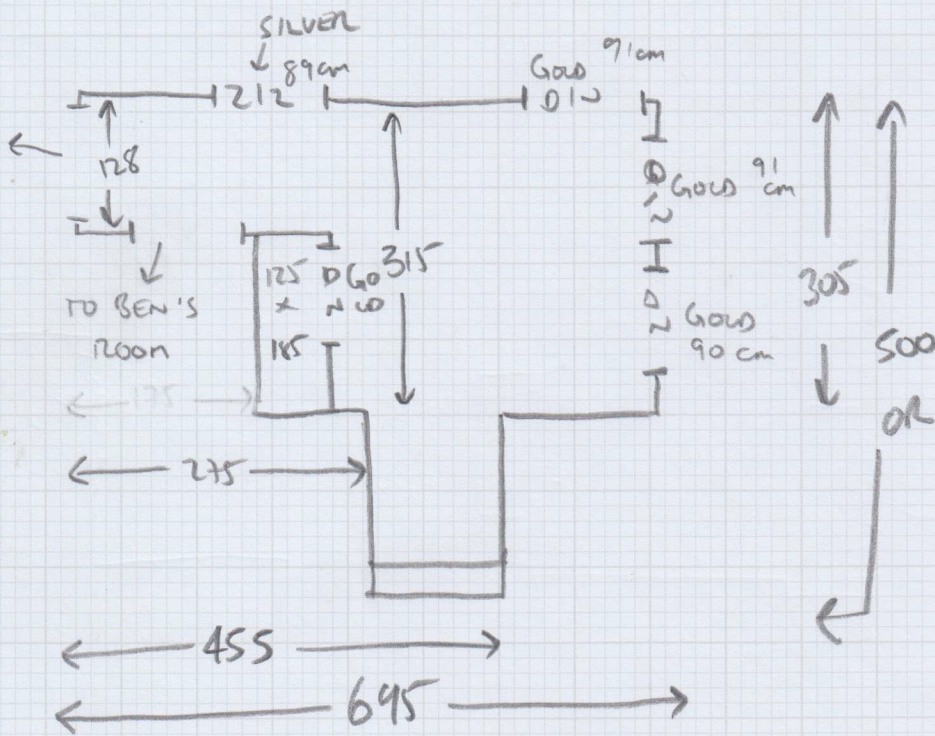 SILVER
89cm
212
GOLD 91cm
DIN
128
GOLD 91
cm
DIN
TO BEN'S
ROOM
125
X
185
GOLD
315
GOLD
90 cm
305
500
OR
275
455
695